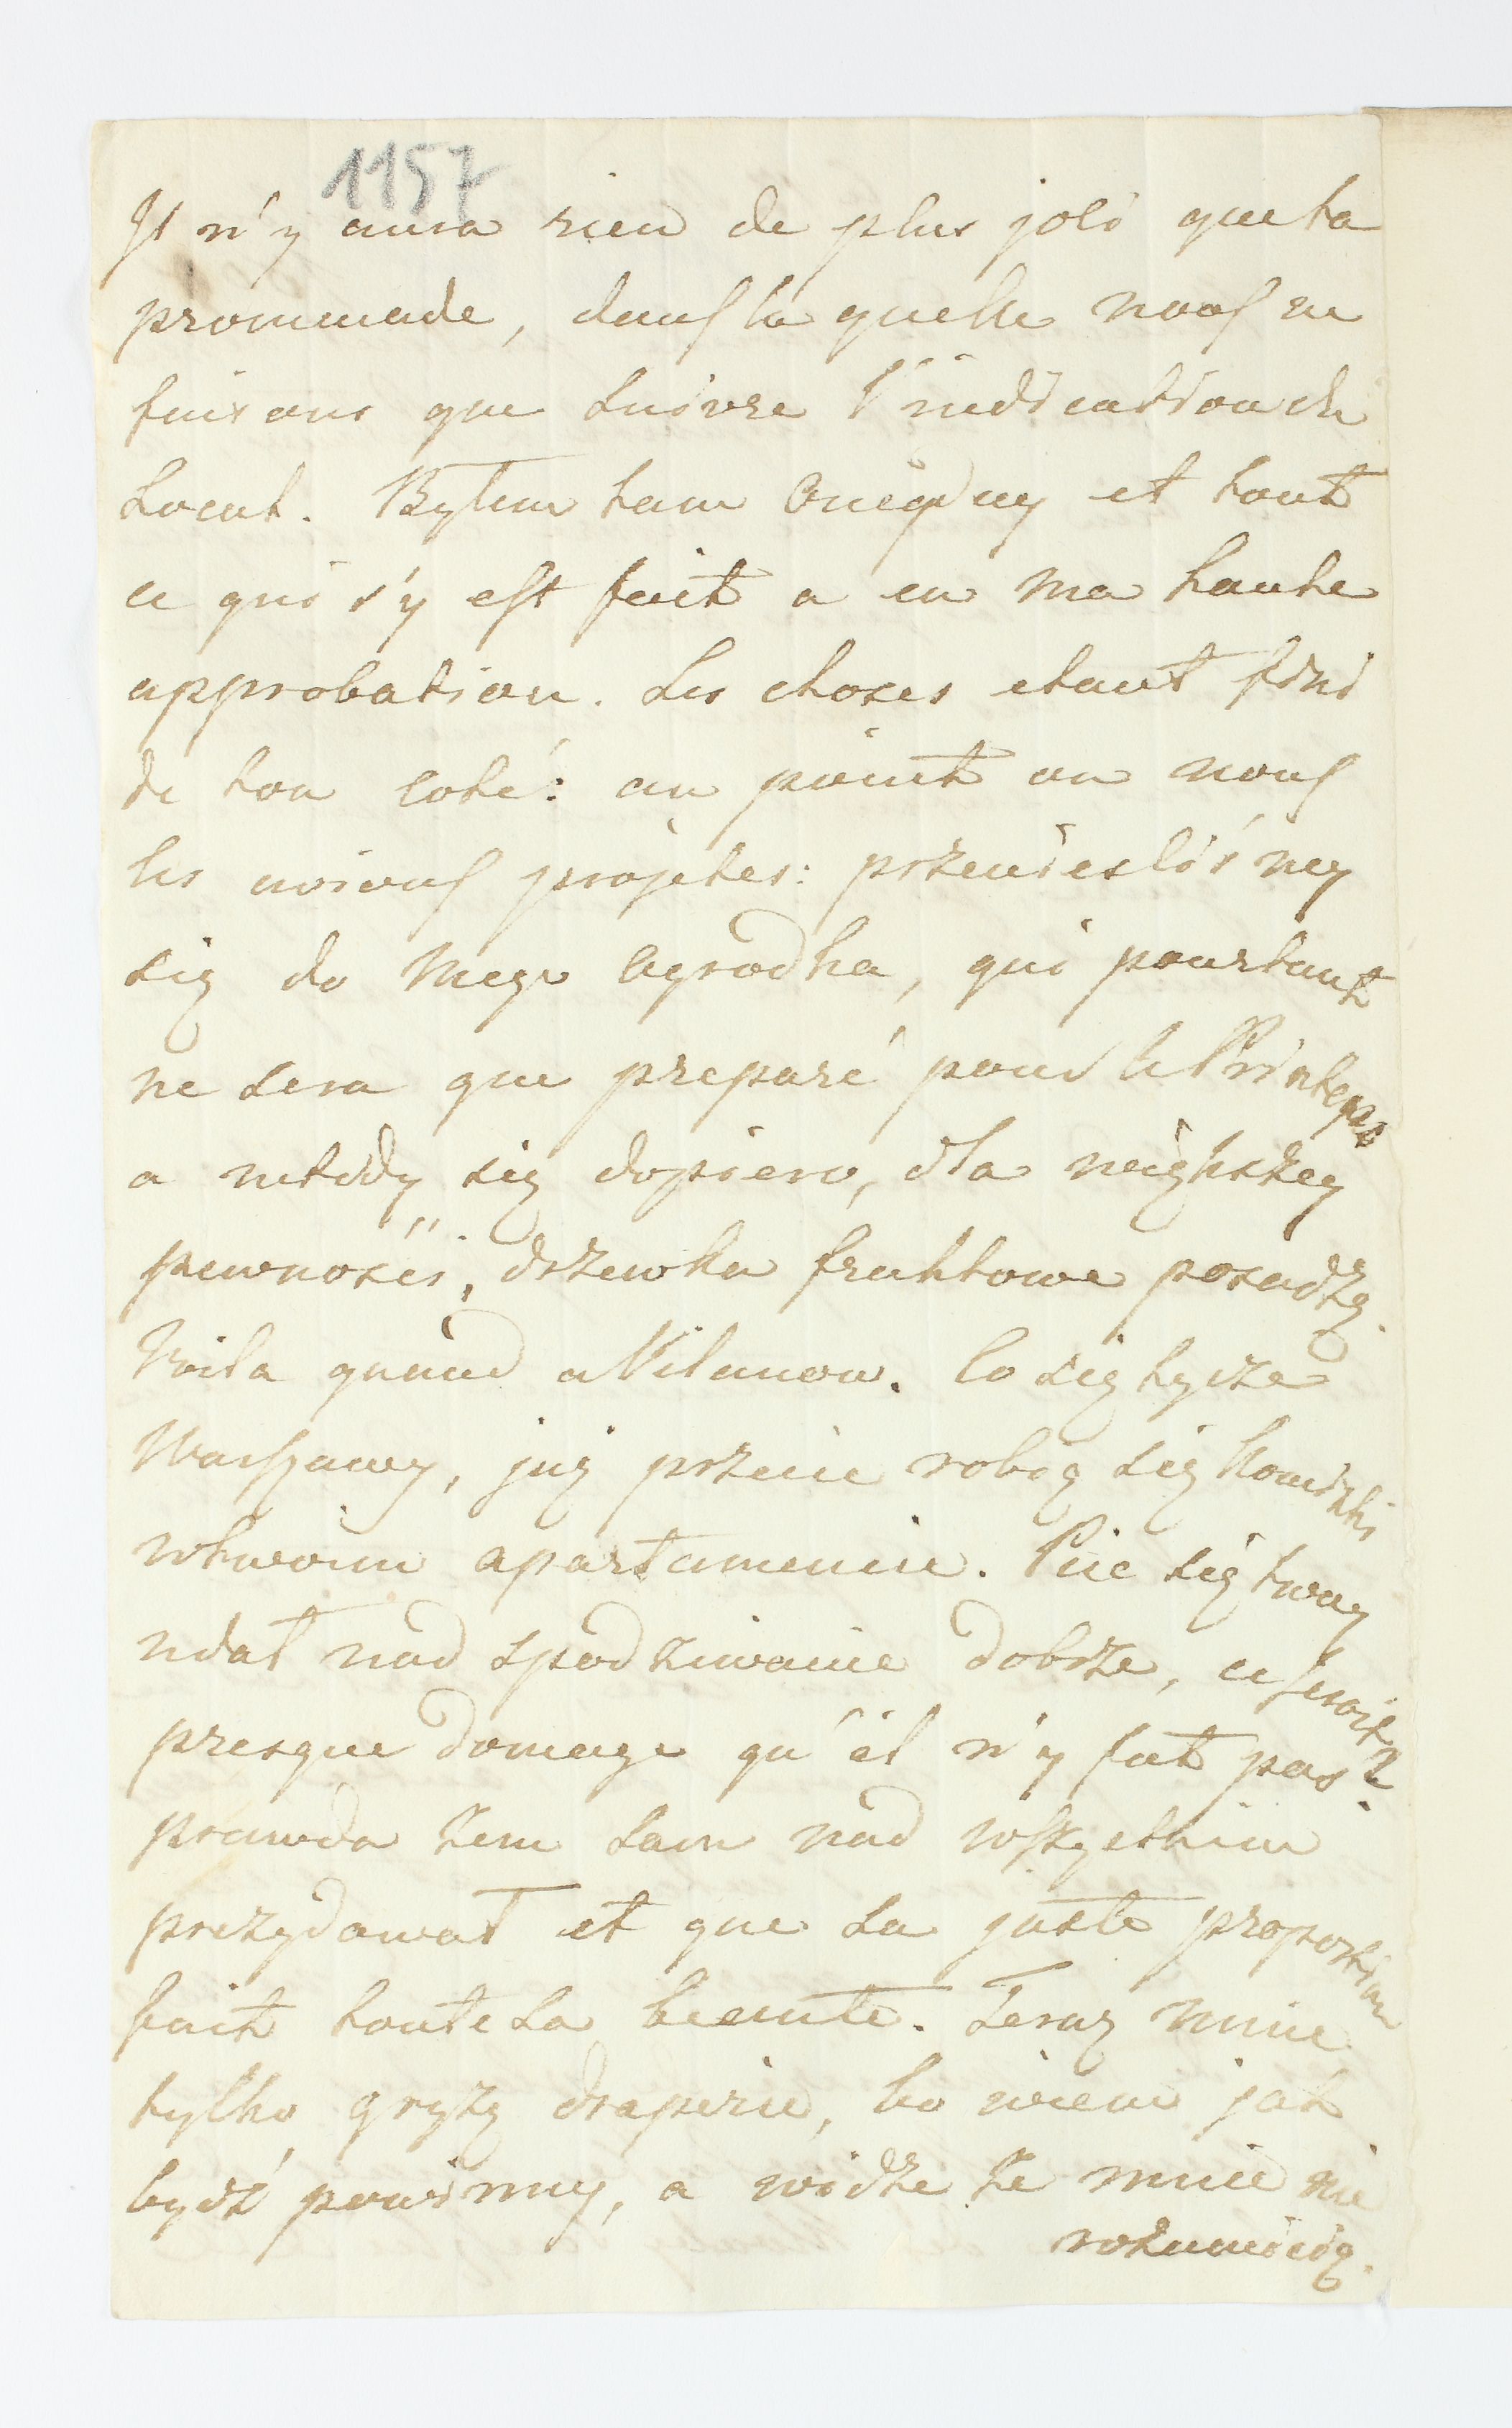 1157
Il n'y aura rien de plus joli que ta
promenade, dans la quelle nous ne
faisons que suivre l'indication du
Locat. Bylem tam onegday et tout
ce qui s'y est fait a eu ma haute
approbation. Les choses etant fini
de ton coté: au point ou nous
les avions projetes: przenieslismy
się do mego ogrodka, qui pourtant
ne sera que preparé pour le Printems
a wtedy się dopiero, dla większey
pewnosci, drzewka fruktowe posadzą.
Voila quand a Vilanow. Co się tycze
Warszawy, już przecie robią się Kominki
w twoim apartamencie. Piec się twoy
udał nad spodziwanie dobrze, ce seroit
presque domage qu'il n'y fut pas?
prawda żem sam nad wszystkim
prezydował et que la juste proportion
fait toute la beaute. Teraz mnie
tylko gryzą draperie, bo wiem jak
bydź powinny, a widze że mnie nie
rozumieią.